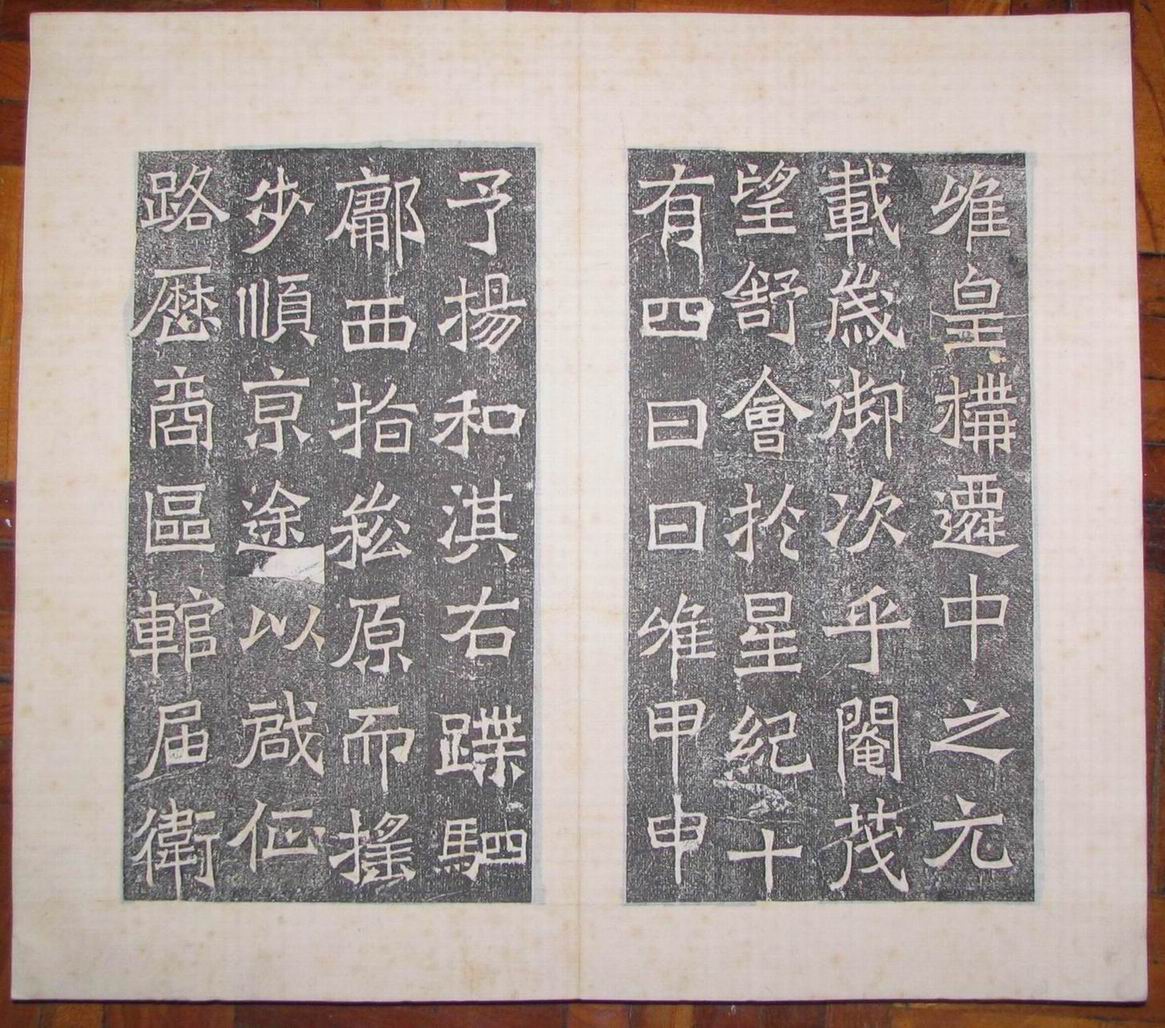 唯皇構遷中之元
載歲御次乎閹茂
望舒會於星紀十
有四日日唯甲申
予揚和淇右蹀駟
鄘西指崧原而搖
步順京途以啟征
路歷商區輨屆衛